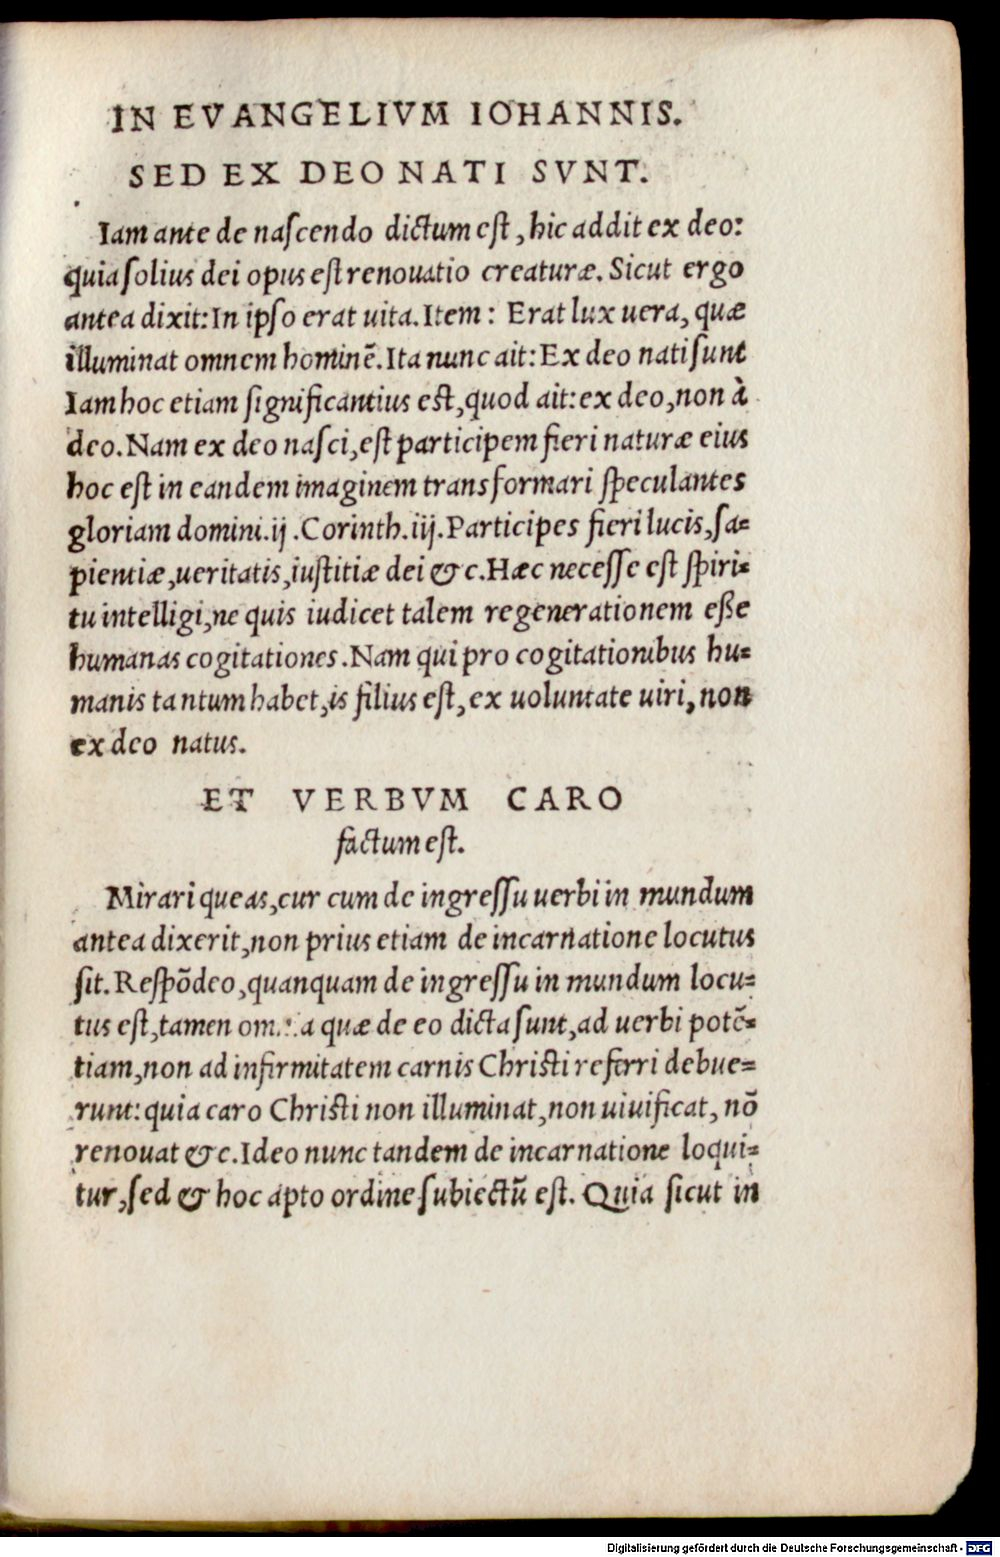 IN EVANGELIVM IOHANNIS.
SED EX DEO NATI SVNT.
Iam ante de naſcendo dictum eſt, hic addit ex deo:
quia ſolius dei opus eſt renouatio creaturæ. Sicut ergo
antea dixit: In ipſo erat uita. Item: Erat lux uera, quæ
illuminat omnem hominē. Ita nunc ait: Ex deo nati ſunt
Iam hoc etiam ſignificantius eſt, quod ait: ex deo, non à
deo. Nam ex deo naſci, eſt participem fieri naturæ eius
hoc eſt in eandem imaginem transformari ſpeculantes
gloriam domini. ij. Corinth. iij. Participes fieri lucis, ſa=
pientiæ, ueritatis, iuſtitiæ dei &c. Hæc neceſſe eſt ſpiri=
tu intelligi, ne quis iudicet talem regenerationem eſſe
humanas cogitationes. Nam qui pro cogitationibus hu=
manis tantum habet, is filius eſt, ex uoluntate uiri, non
ex deo natus.
ET VERBVM CARO
factum eſt.
Mirari queas, cur cum de ingreſſu uerbi in mundum
antea dixerit, non prius etiam de incarnatione locutus
ſit. Reſpōdeo, quanquam de ingreſſu in mundum locu=
tus eſt, tamen quæ de eo dicta ſunt, ad uerbi potē=
tiam, non ad infirmitatem carnis Chriſti referri debue=
runt: quia caro Chriſti non illuminat, non uiuificat, nō
renouat &c. Ideo nunc tandem de incarnatione loqui=
tur, ſed & hoc apto ordine ſubiectū eſt. Quia ſicut in
Digitalisierung gefördert durch die Deutsche Forschungsgemeinschaft - DFG